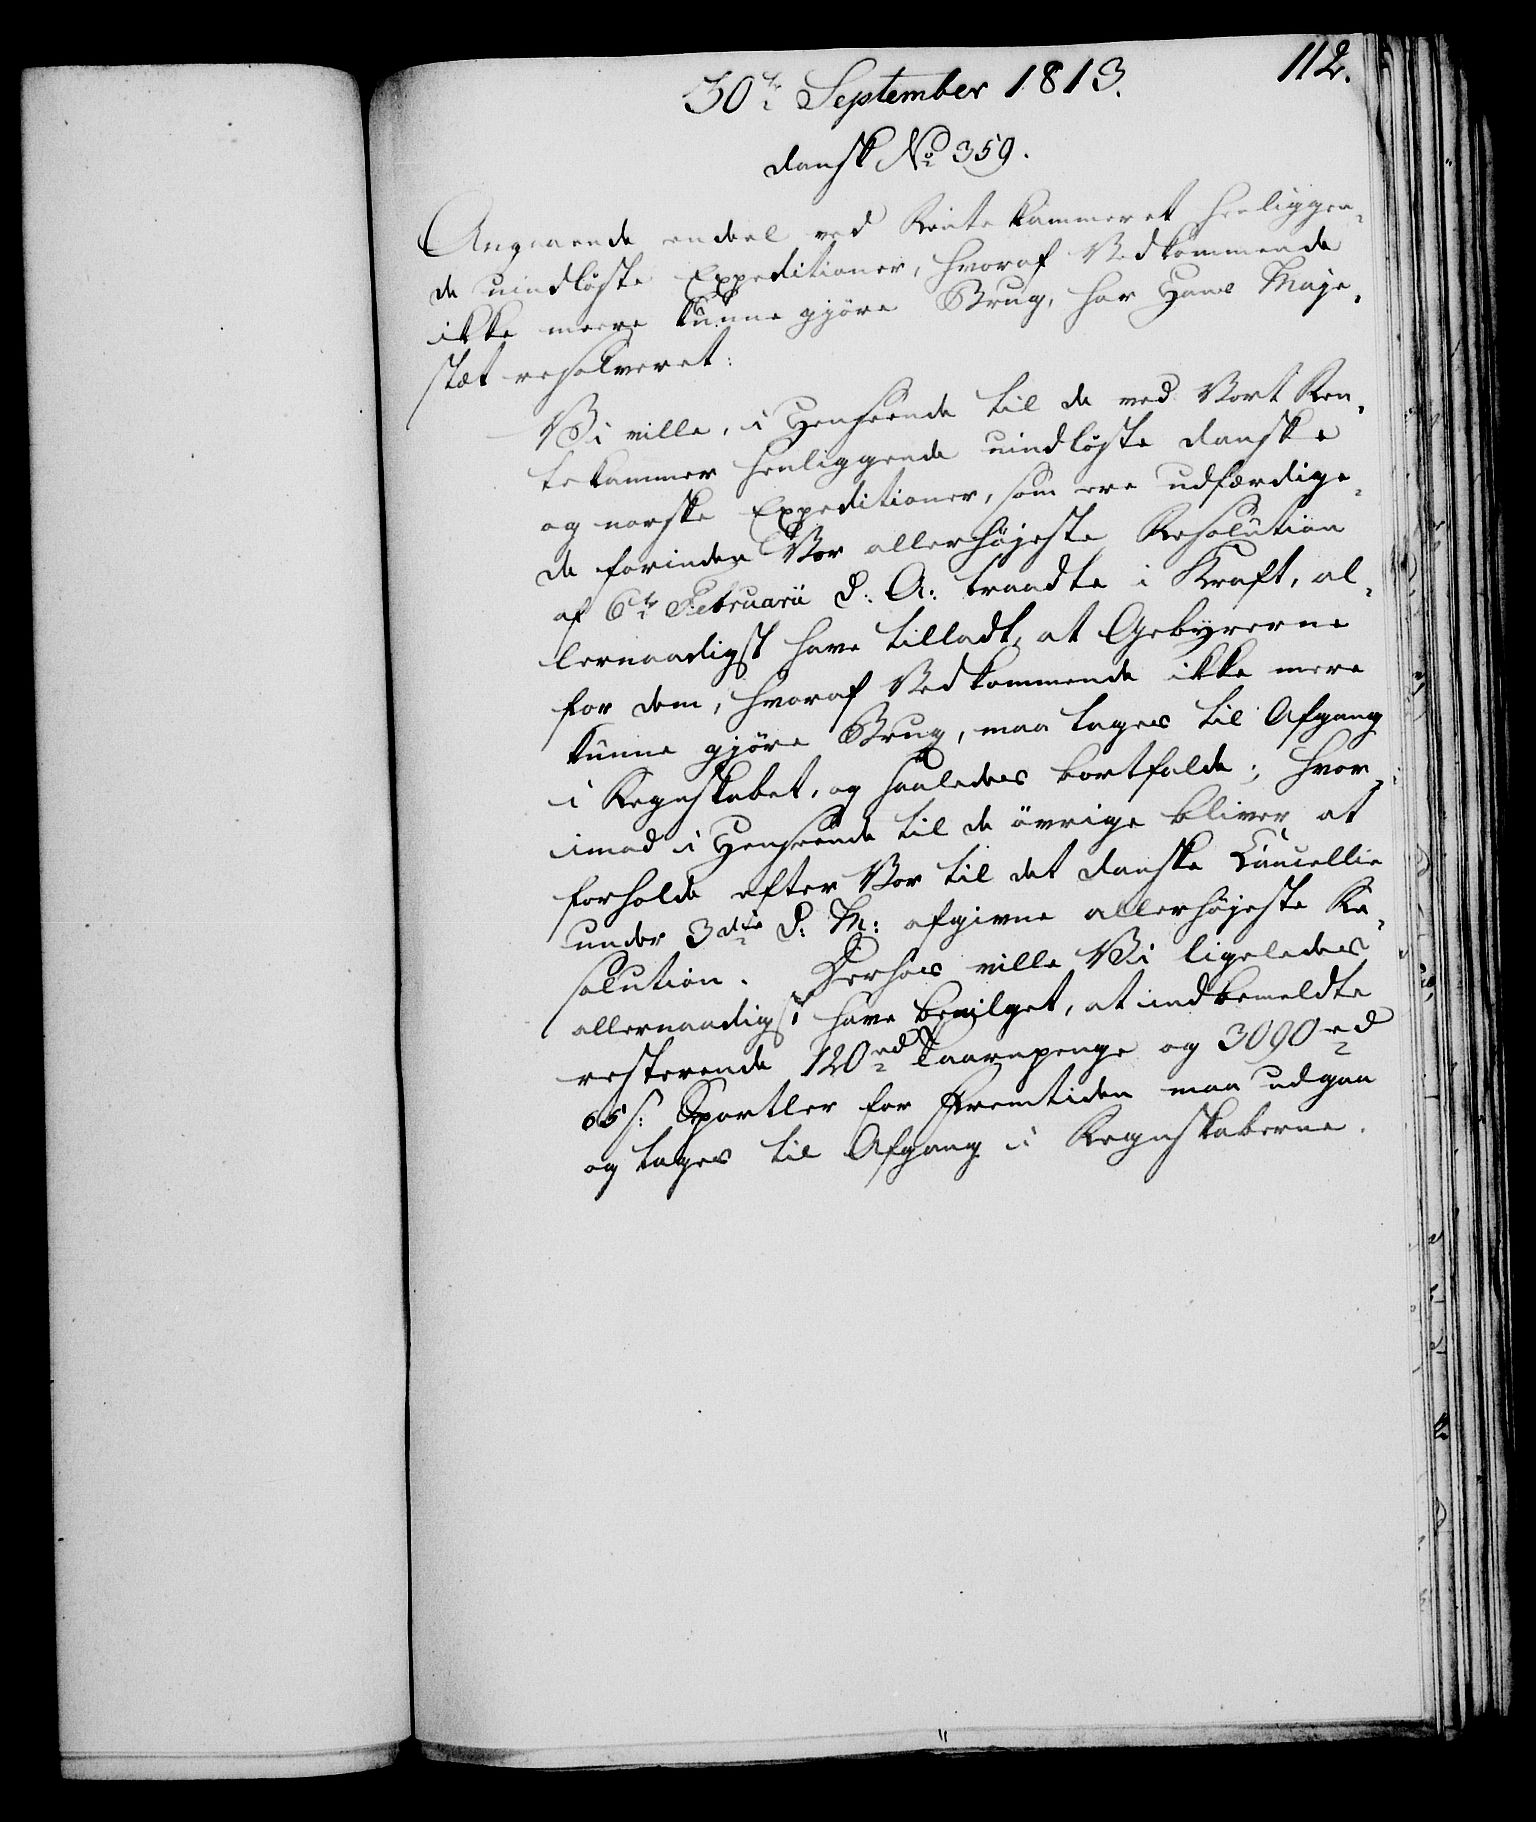 112.
30te September 1813.
dansk No 359.
Angaaende endeel ved Rentekammeret henliggen-
de uindløste Expeditioner, hvoraf Vedkommende
ikke meere kunne gjöre Brug, har Hans Maje-
stæt resolveret:
Vi ville, i Henseende til de ved Vort Ren-
tekammer henliggende uindløste danske
og norske Expeditioner, som ere udfærdige-
de forinden Vor allerhøjeste Resolution
af 6te Februarii d: A: traadte i Kraft, al-
lernaadigst have tilladt, at Gebyrerne
for dem, hvoraf Vedkommende ikke mere
kunne gjöre Brug, maa tages til Afgang
i Regnskabet, og saaledes bortfalde; hvor-
imod i Henseende til de övrige bliver at
forholde efter Vor til det danske Cancellie
under 3die d: M: afgivne allerhøjeste Re-
solution. Derhos ville Vi ligeledes
allernaadigst have bevilget, at indbemeldte
resterende 120 rd Taarnpenge og 3090 rd
65 s: Sportler for Fremtiden maa udgaa
og tages til Afgang i Regnskaberne.